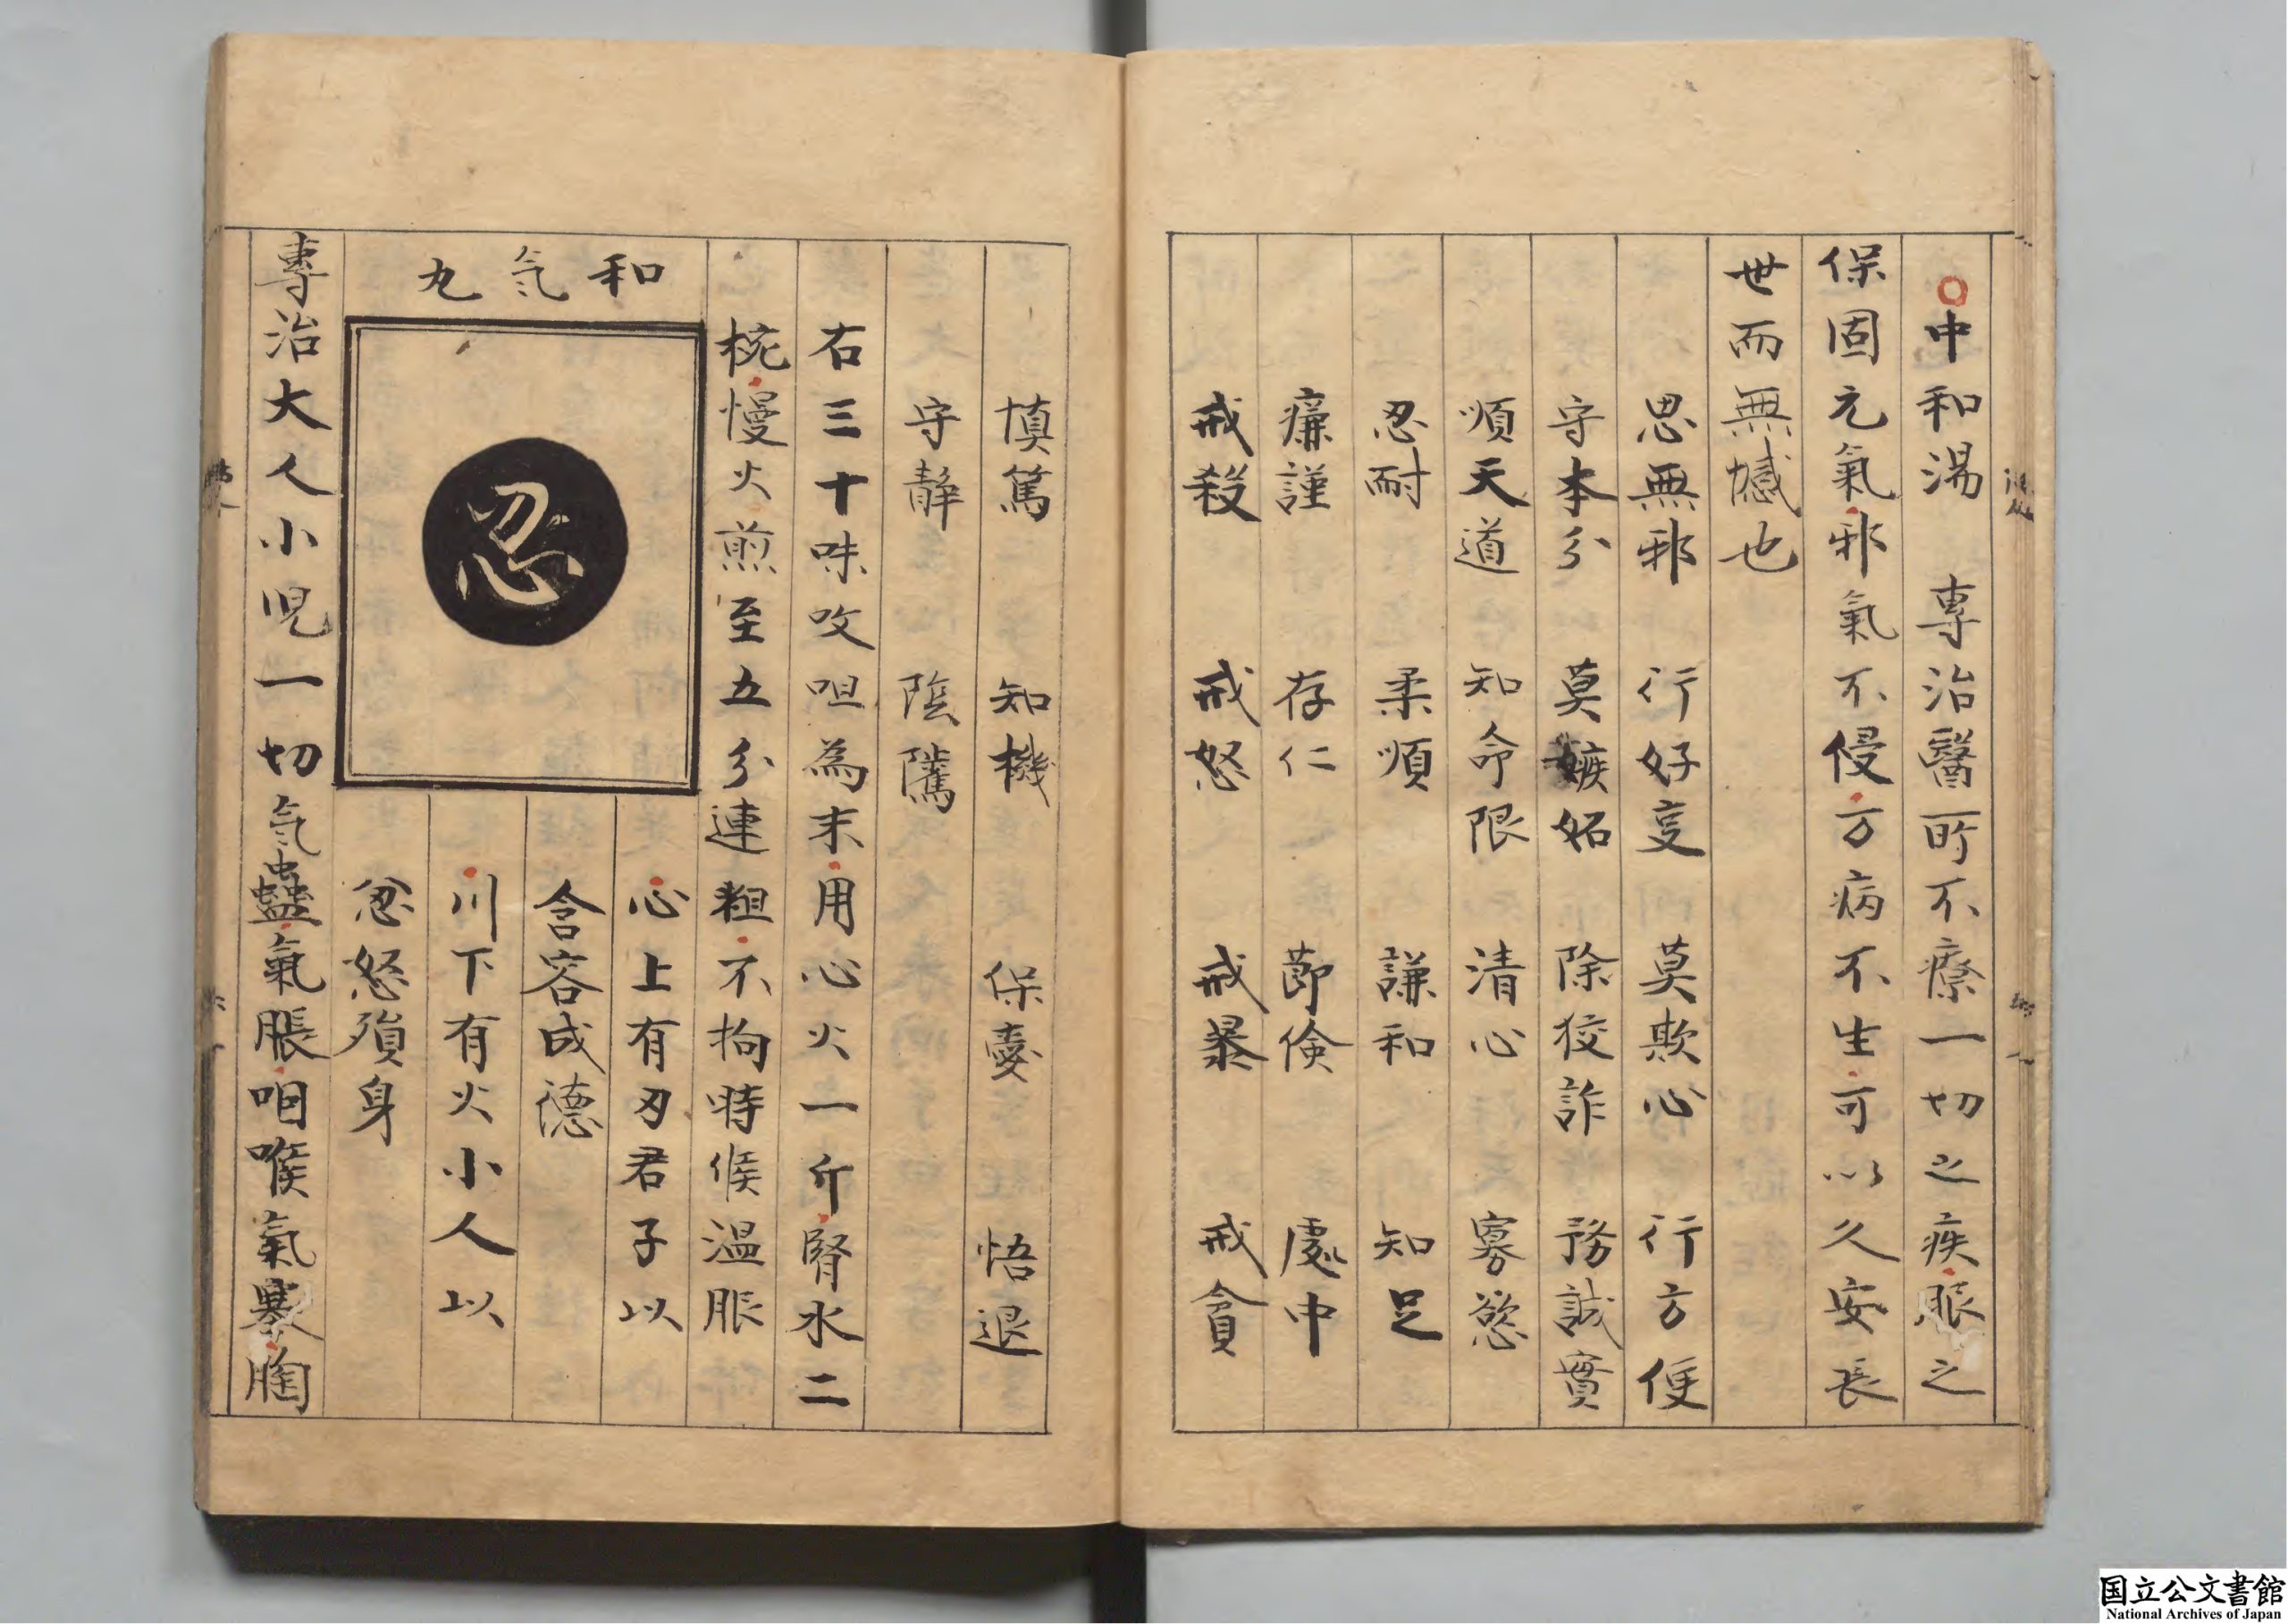 ○中和湯　專治醫所不療一切之疾服之
保固元氣邪氣不侵方病不生可以久安長
世而無憾也
思無邪　行好事　莫欺心　行方便
守本分　莫嫉妬　除狡詐　務誠實
順天道　知命限　清心　寡慾
忍耐　柔順　謙和　知足
廉謹　存仁　節儉　處中
戒殺　戒怒　戒暴　戒貪
慎篤　知機　保愛　恬退
守静　陰隲
右三十味㕮咀為末用心火一斤腎水二
椀慢火煎至五分連粗不拘時候温服
和気丸
忍
心上有刃君子以
含容成德
川下有火小人以
忿怒殞身
專治大人小児一切気蠱氣脹咽喉氣塞胸
国立公文書館
National Archives of Japan